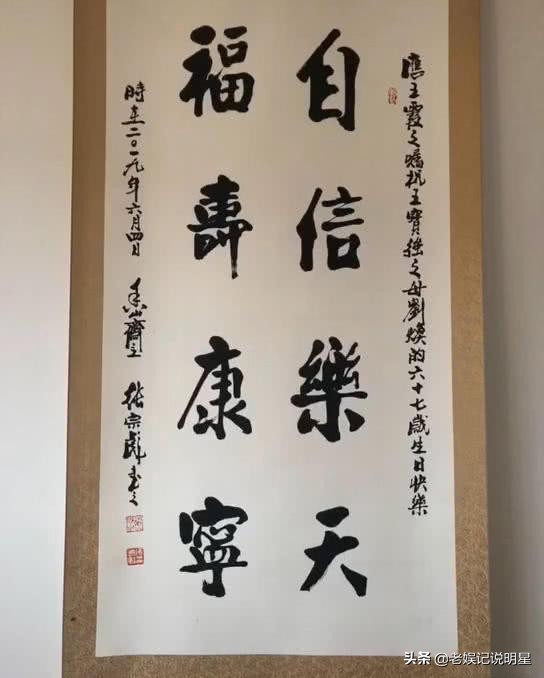 應王霞之囑祝王寶強之母劉煥的六十七歲生日快樂
自信樂天
福壽康寧
時在二〇一九年六月四日 香山齋主 張宗彪書之
头条 @老娱记说明星